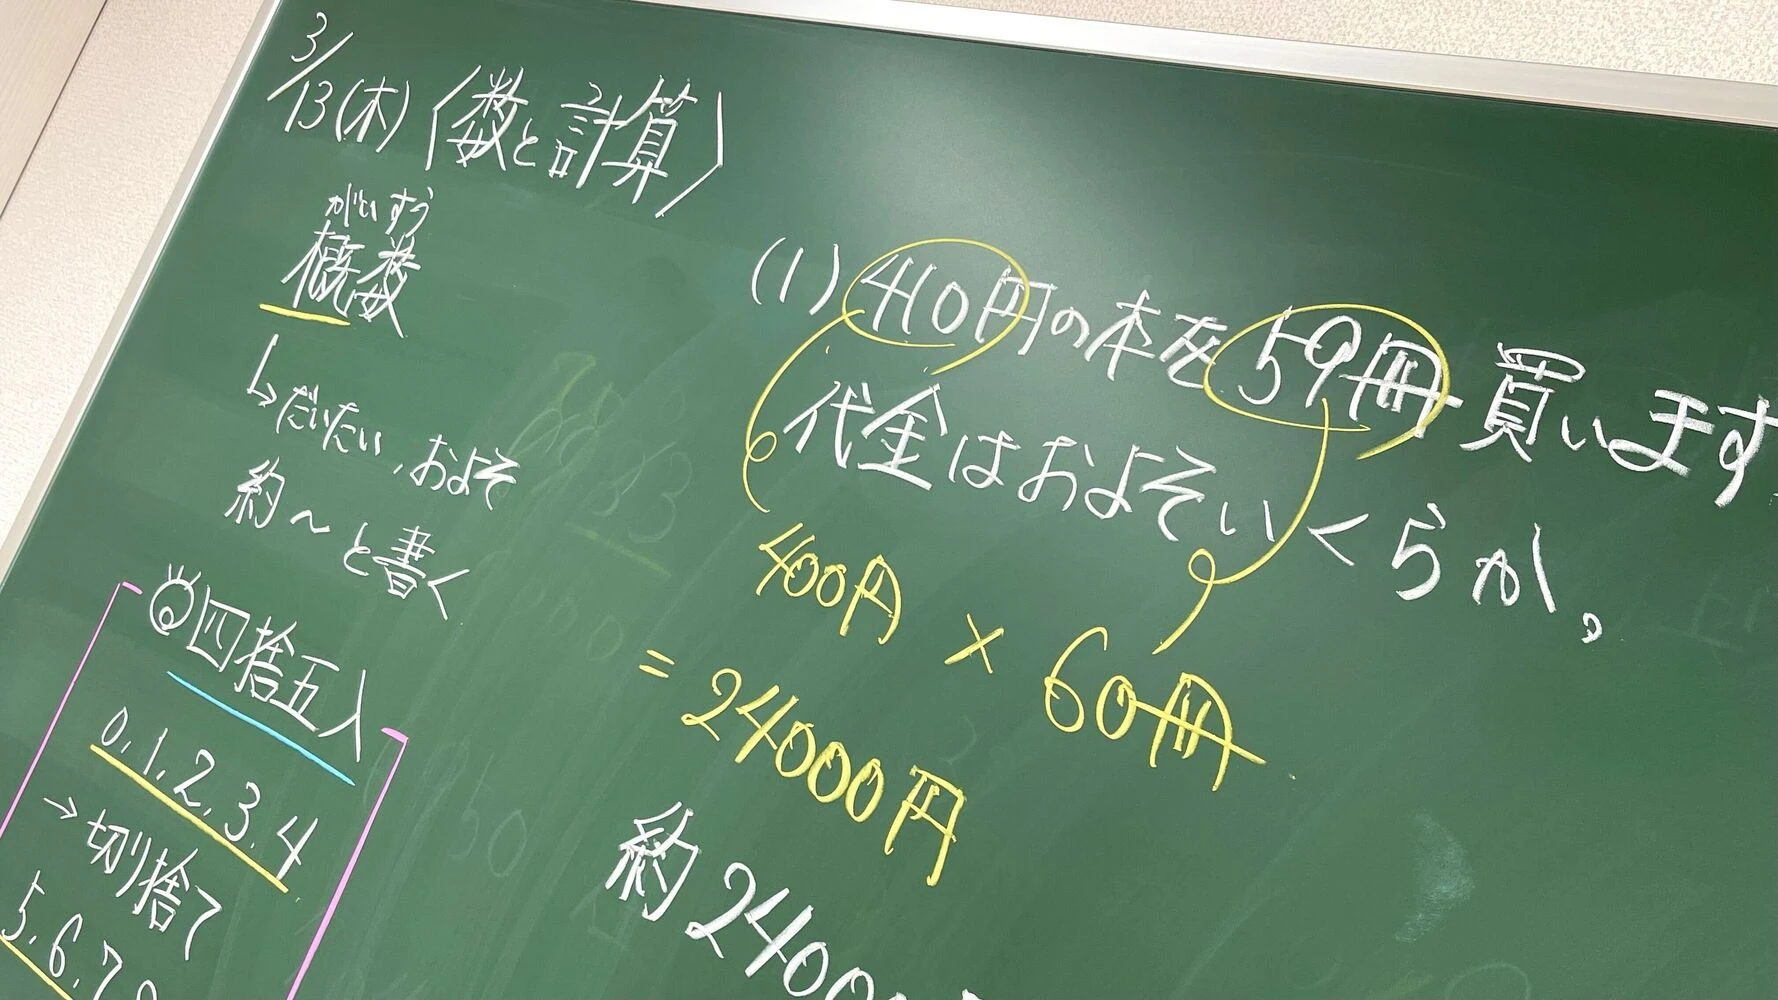 3/13(木)〈数と計算〉
がいすう
概数
↳だいたい、およそ
約〜と書く
◎四捨五入
0.1.2.3.4
→切り捨て
5.6.7.8
(1)410円の本を59冊買います
代金はおよそいくらか。
400円×60冊
=24000円
約24000円